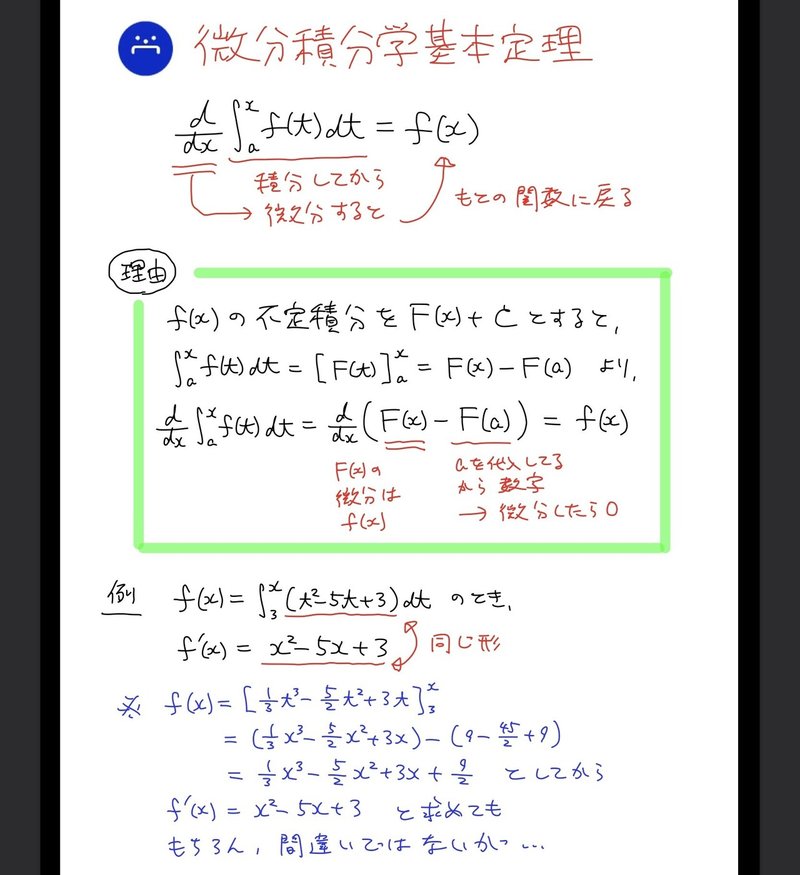 微分積分学基本定理
d/dx ∫_a^x f(t)dt = f(x)
積分してから
微分すると
もとの関数に戻る
理由
f(x)の不定積分をF(x)+Cとすると,
∫_a^x f(t)dt = [F(t)]_a^x = F(x)-F(a) より,
d/dx ∫_a^x f(t)dt = d/dx (F(x)-F(a)) = f(x)
F(x)の
微分は
f(x)
aを代入してる
から数字
→ 微分したら0
例 f(x)=∫_3^x (t²-5t+3)dt のとき,
f'(x)= x²-5x+3
同じ形
※ f(x)=[1/3 t³-5/2 t²+3t]_3^x
=(1/3 x³-5/2 x²+3x)-(9-45/2+9)
=1/3 x³-5/2 x²+3x+9/2 としてから
f'(x)=x²-5x+3 と求めても
もちろん,間違いではないが…